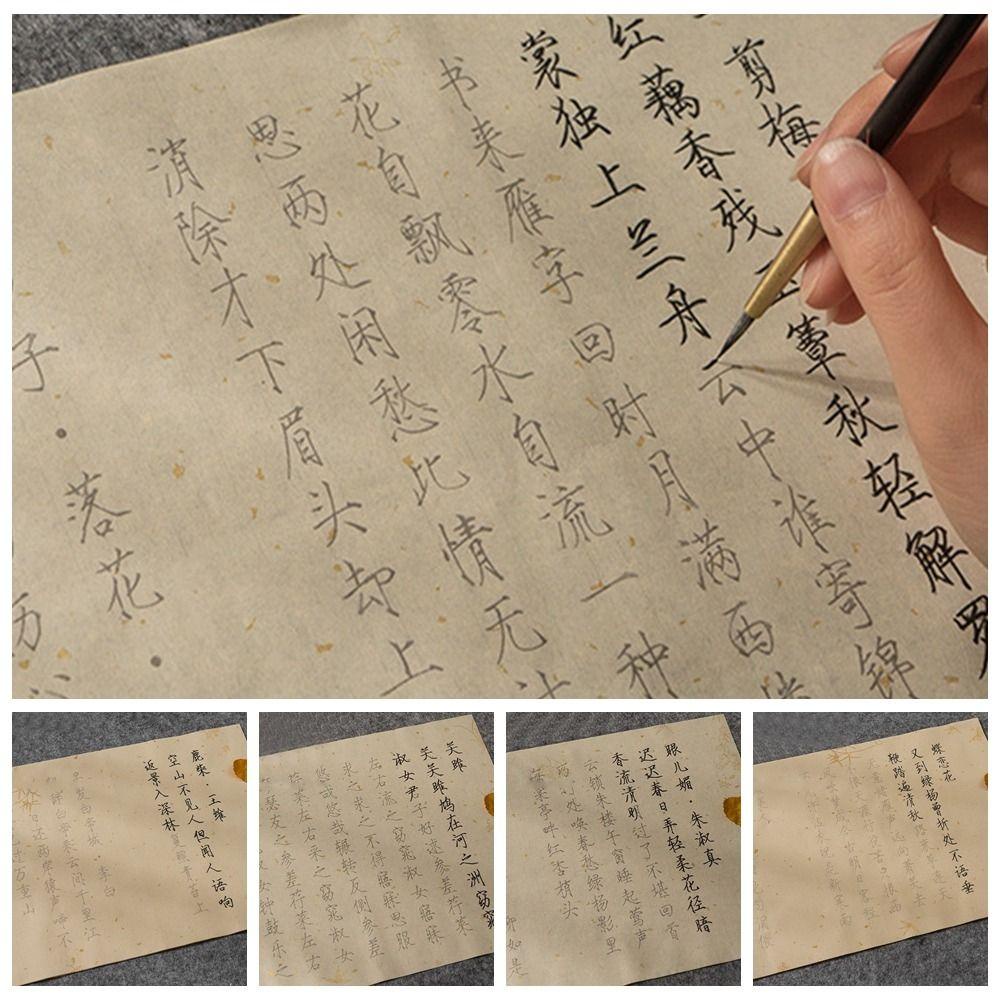 剪梅
红藕香残玉簟秋轻解罗
裳独上兰舟云中谁寄锦
书来雁字回时月满西
花自飘零水自流一种
思两处闲愁比情无计
消除才下眉头却上
子·落花·
鹿柴·王维
空山不见人但闻人语响
近景入深林复照青苔上
早发白帝城·李白
白帝彩云间千里江
陵一日还两岸猿声啼不
过万重山
关雎
关关雎鸠在河之洲窈窕
淑女君子好逑参差荇菜
左右流之窈窕淑女寤寐
求之求之不得寤寐思服
悠哉悠哉辗转反侧参差
荇菜左右采之窈窕淑女
琴瑟友之参差荇菜左右
女钟鼓乐之
眼儿媚·朱淑真
迟迟春日弄轻柔花径暗
香流清明过了不堪回首
云锁朱楼午窗睡起莺声
何处唤春愁绿杨影里
海棠亭畔红杏梢头
却如是
蝶恋花
又到绿杨曾折处不语垂
鞭踏遍清秋路衰草连天